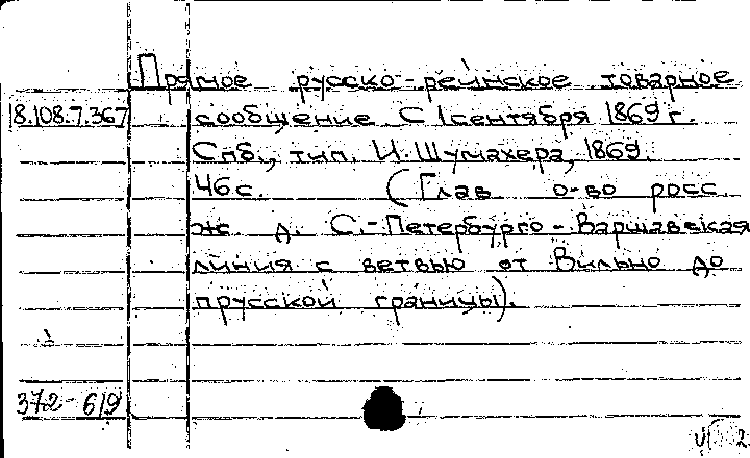 Прямое русско-рейнское товарное
18.108.7.367 сообщение С 1 сентября 1869 г.
Спб., тип. И. Шумахера, 1869.
46 с. (Глав о-во росс
ж. д. С.-Петербурго-Варшавская
линия с ветвью от Вильно до
прусской границы).
372-619